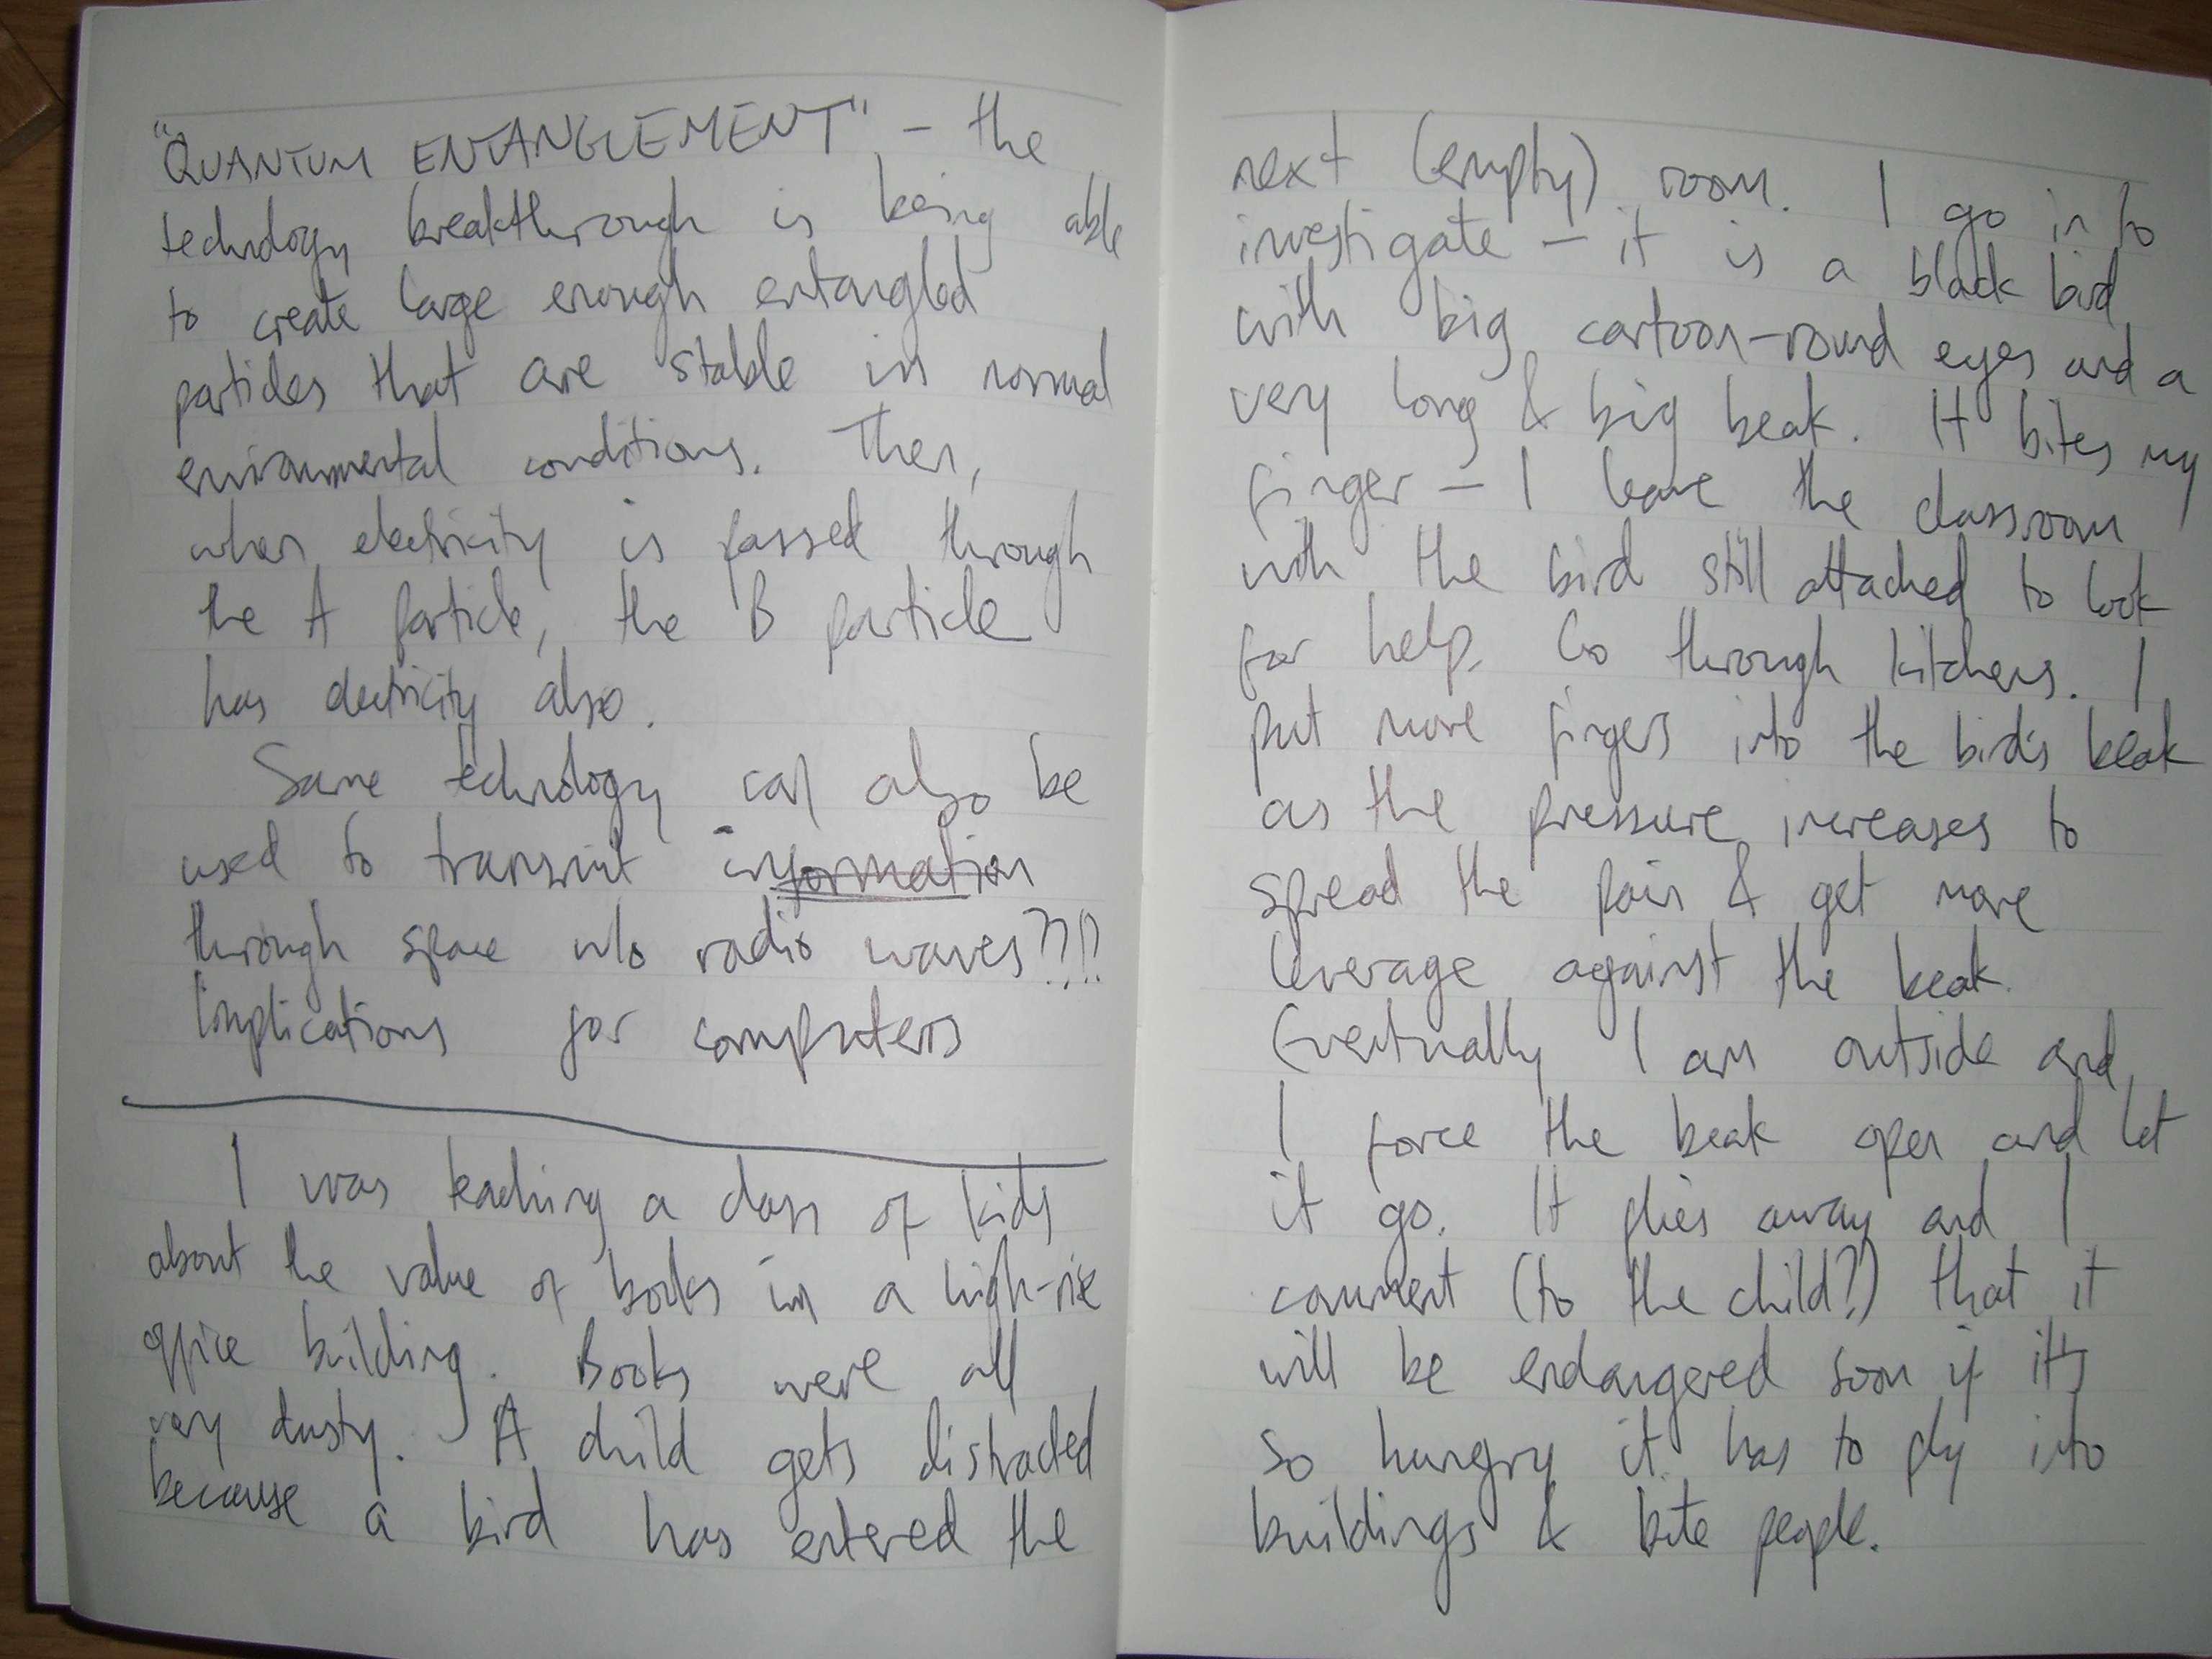 "QUANTUM ENTANGLEMENT" - the
technology breakthrough is being able
to create large enough entangled
particles that are stable in normal
environmental conditions. Then,
when electricity is passed through
the A particle, the B particle
has electricity also.
Same technology can also be
used to transmit information
through space w/o radio waves??!!
Implications for computers
I was teaching a class of kids
about the value of books in a high-rise
office building. Books were all
very dusty. A child gets distracted
because a bird has entered the
next (empty) room. I go in to
investigate - it is a black bird
with big cartoon-round eyes and a
very long & big beak. It bites my
finger - I leave the classroom
with the bird still attached to look
for help. Go through kitchens. I
put more fingers into the bird's beak
as the pressure increases to
spread the pain & get more
leverage against the beak.
Eventually I am outside and
I force the beak open and let
it go. It flies away and I
comment (to the child?) that it
will be endangered soon if it's
so hungry it has to fly into
buildings & bite people.